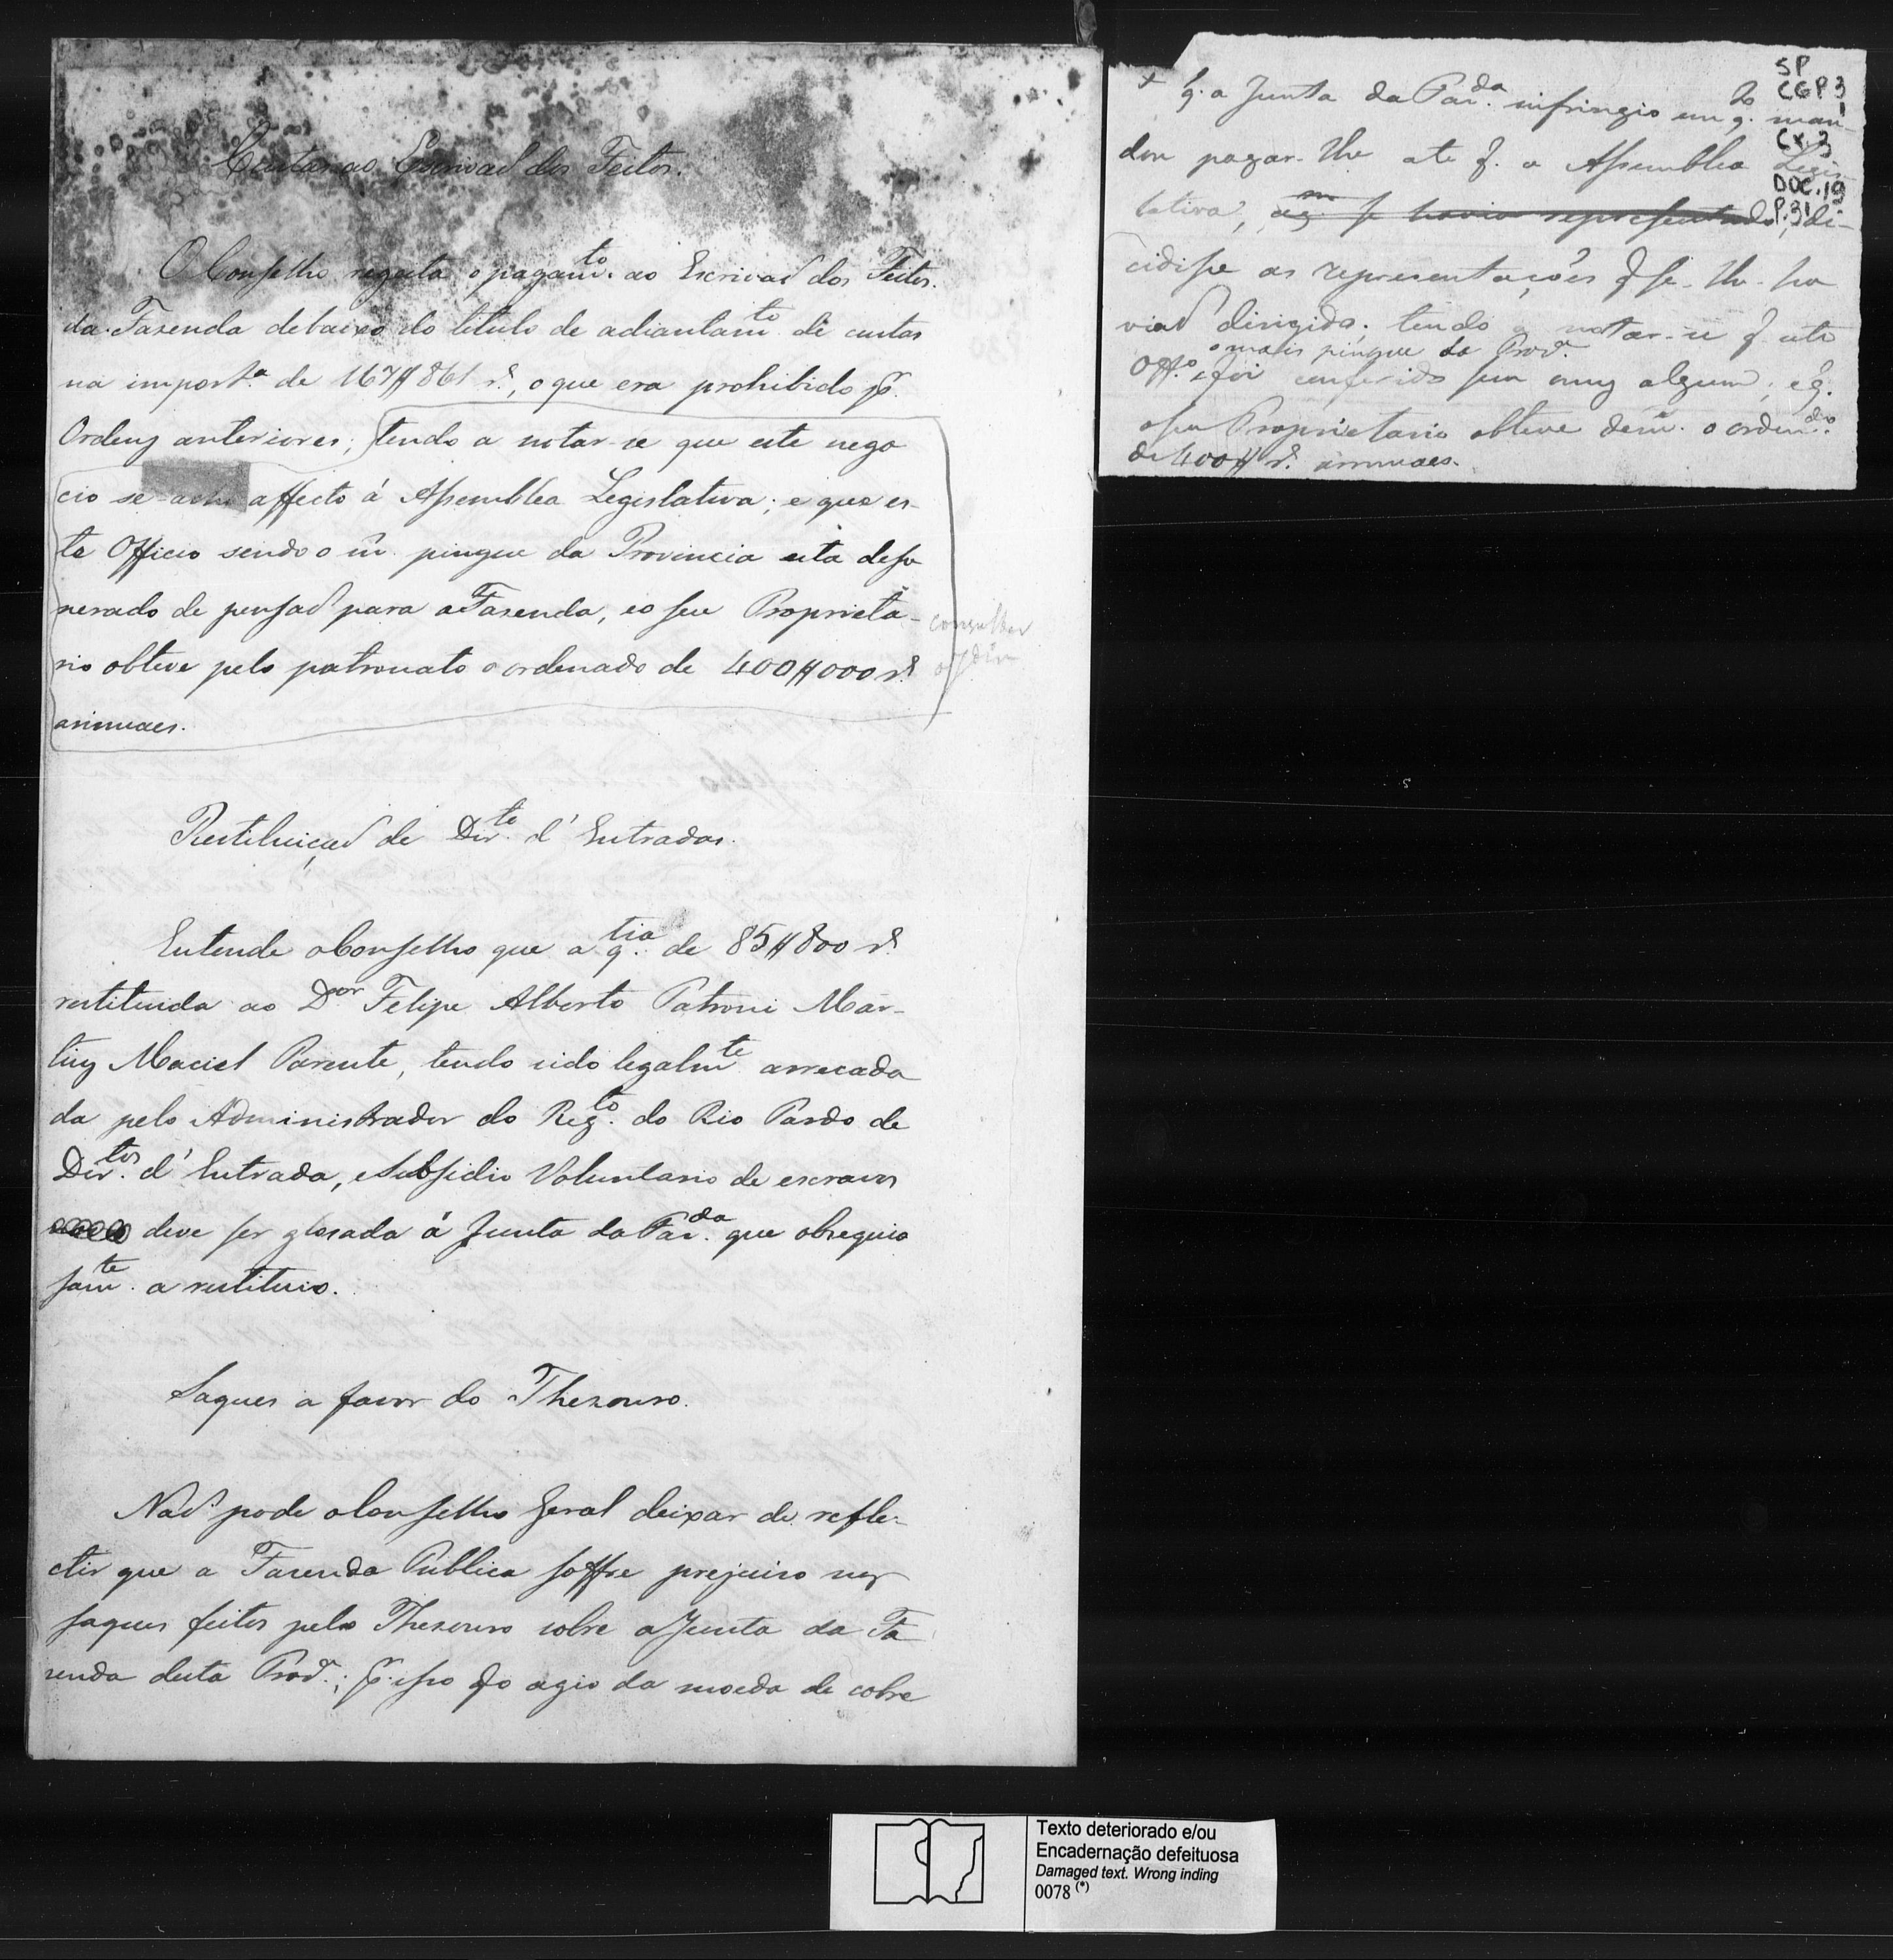 Custas ao Escrivaõ dos Feitos.
O Conselho regeita o pagam.to ao Escrivaõ dos Feitos
da Fazenda debaixo do titulo de adiantam.to de custas
na import.a de 167$861 r.s, o que era prohibido p.r
Ordens anteriores; tendo a notar-se que este nego
cio se acha affecto á Assemblea Legislativa; e que es-
te Officio sendo o m. pingue da Provincia está deso
nerado de pensaõ para a Fazenda, e o seu Proprieta-
rio obteve pelo patronato o ordenado de 400$000 r.s
annuaes.
consultar
Restituiçaõ de Dir.to d'Entradas.
Entende o Conselho que a q.tia de 85$800 r.s
restituida ao D.or Felipe Alberto Patroni Mar-
tins Maciel Parente, tendo sido legalm.te arrecada
da pelo Administrador do Reg.to do Rio Pardo de
Dir.tos d'Entrada, e Subsidio Voluntario de escravos
deve ser glosada á Junta da Faz.da que obsequio
sam.te a restituio.
Saques a favor do Thezouro.
Naõ pode o Conselho Geral deixar de refle-
ctir que a Fazenda Publica soffre prejuizo nos
saques feitos pelo Thezouro sobre a Junta da Fa
zenda desta Prov.a; p.r isso q o agio da moeda de cobre
+ q. a Junta da Faz.da infringio em q.to man-
dou pagar-lhe ate q. a Assemblea Legis-
lativa, a q.m se havia representado, de-
cidisse as representações q se lhe ha
viaõ dirigido; tendo a notar-se q. este
o mais pingue da Prov.a
Off.o, foi conferido sem onus algum; e q.
o seu Proprietario obteve dem. o orden.do
de 400$ r.s annuaes.
SP
CGP 3
1
CX. 3
DOC. 19
P. 31
Texto deteriorado e/ou
Encadernação defeituosa
Damaged text. Wrong inding
0078 (*)